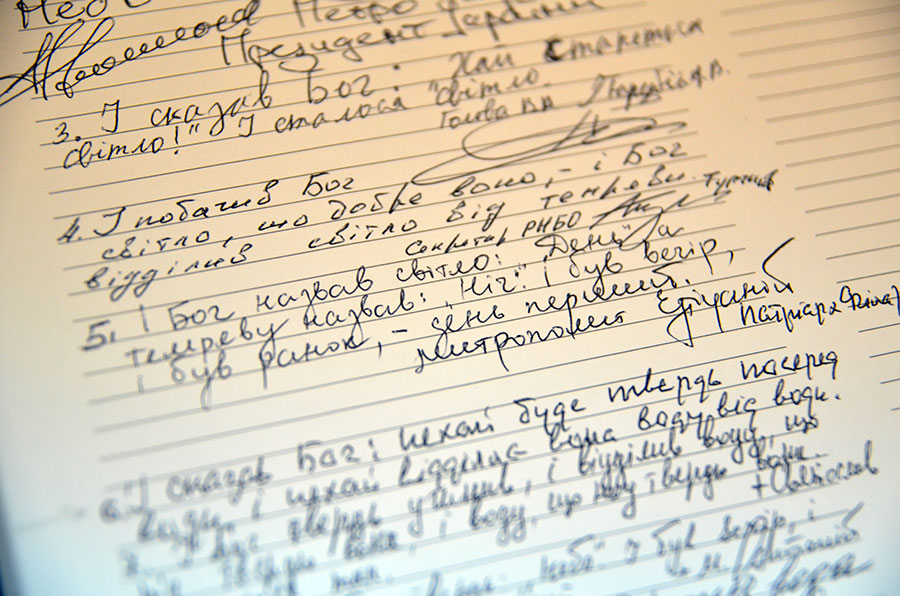 Нео
Петро
Президент України
3. І сказав Бог: "Хай станеться
світло!" І сталося світло.
Голова ВР Парубій А.В.
4. І побачив Бог
світло, що добре воно, – і Бог
відділив світло від темряви. Турчинов
Секретар РНБО
5. І Бог назвав світло: "День", а
темряву назвав: "Ніч". І був вечір,
і був ранок, – день перший.
митрополит Епіфаній
Патріарх Філарет
6. І сказав Бог: нехай буде твердь посеред
води, і нехай відділяє вона воду від води.
7. І Бог твердь учинив, і відділив воду, що
під твердю вона, і воду, що над твердю вона.
"Небо". І був вечір, і